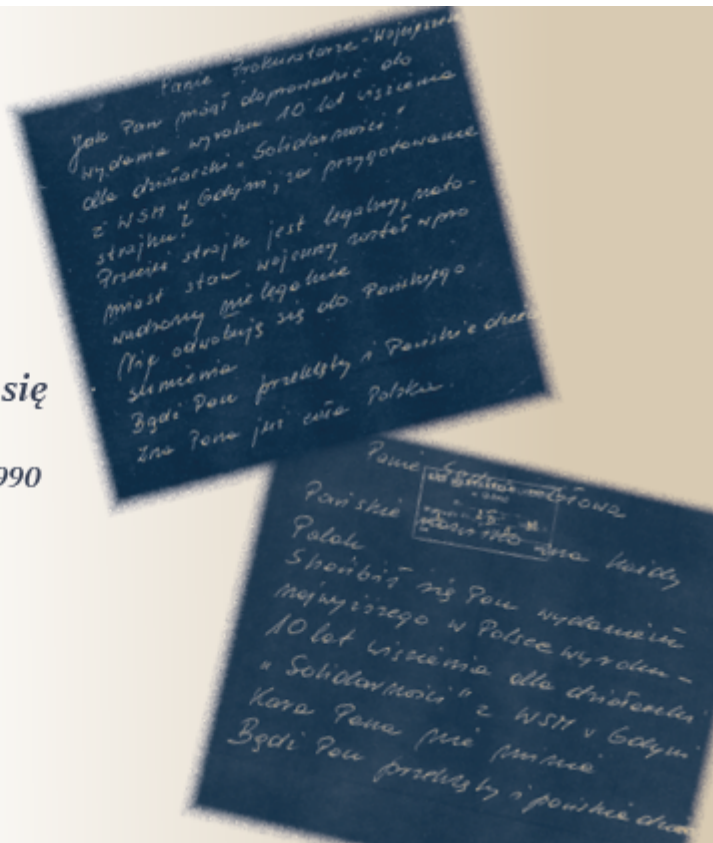 się
990
Panie Prokuratorze-Wojujący
Jak Pan mógł doprowadzić do
wydania wyroku 10 lat więzienia
dla działaczki „Solidarności"
z WSM w Gdyni, za przygotowanie
strajku?
Przecież strajk jest legalny, nato-
miast stan wojenny został wpro
wadzony nielegalnie
Nie odwołuję się do Pańskiego
sumienia
Bądź Pan przeklęty i Pańskie dzieci
Zna Pana już cała Polska.
Panie
Pańskie nazwisko zna każdy
Polak
Shańbił się Pan wydaniem
najwyższego w Polsce wyroku –
10 lat więzienia dla działaczki
„Solidarności" z WSM w Gdyni
Kara Pana nie minie
Bądź Pan przeklęty i pańskie